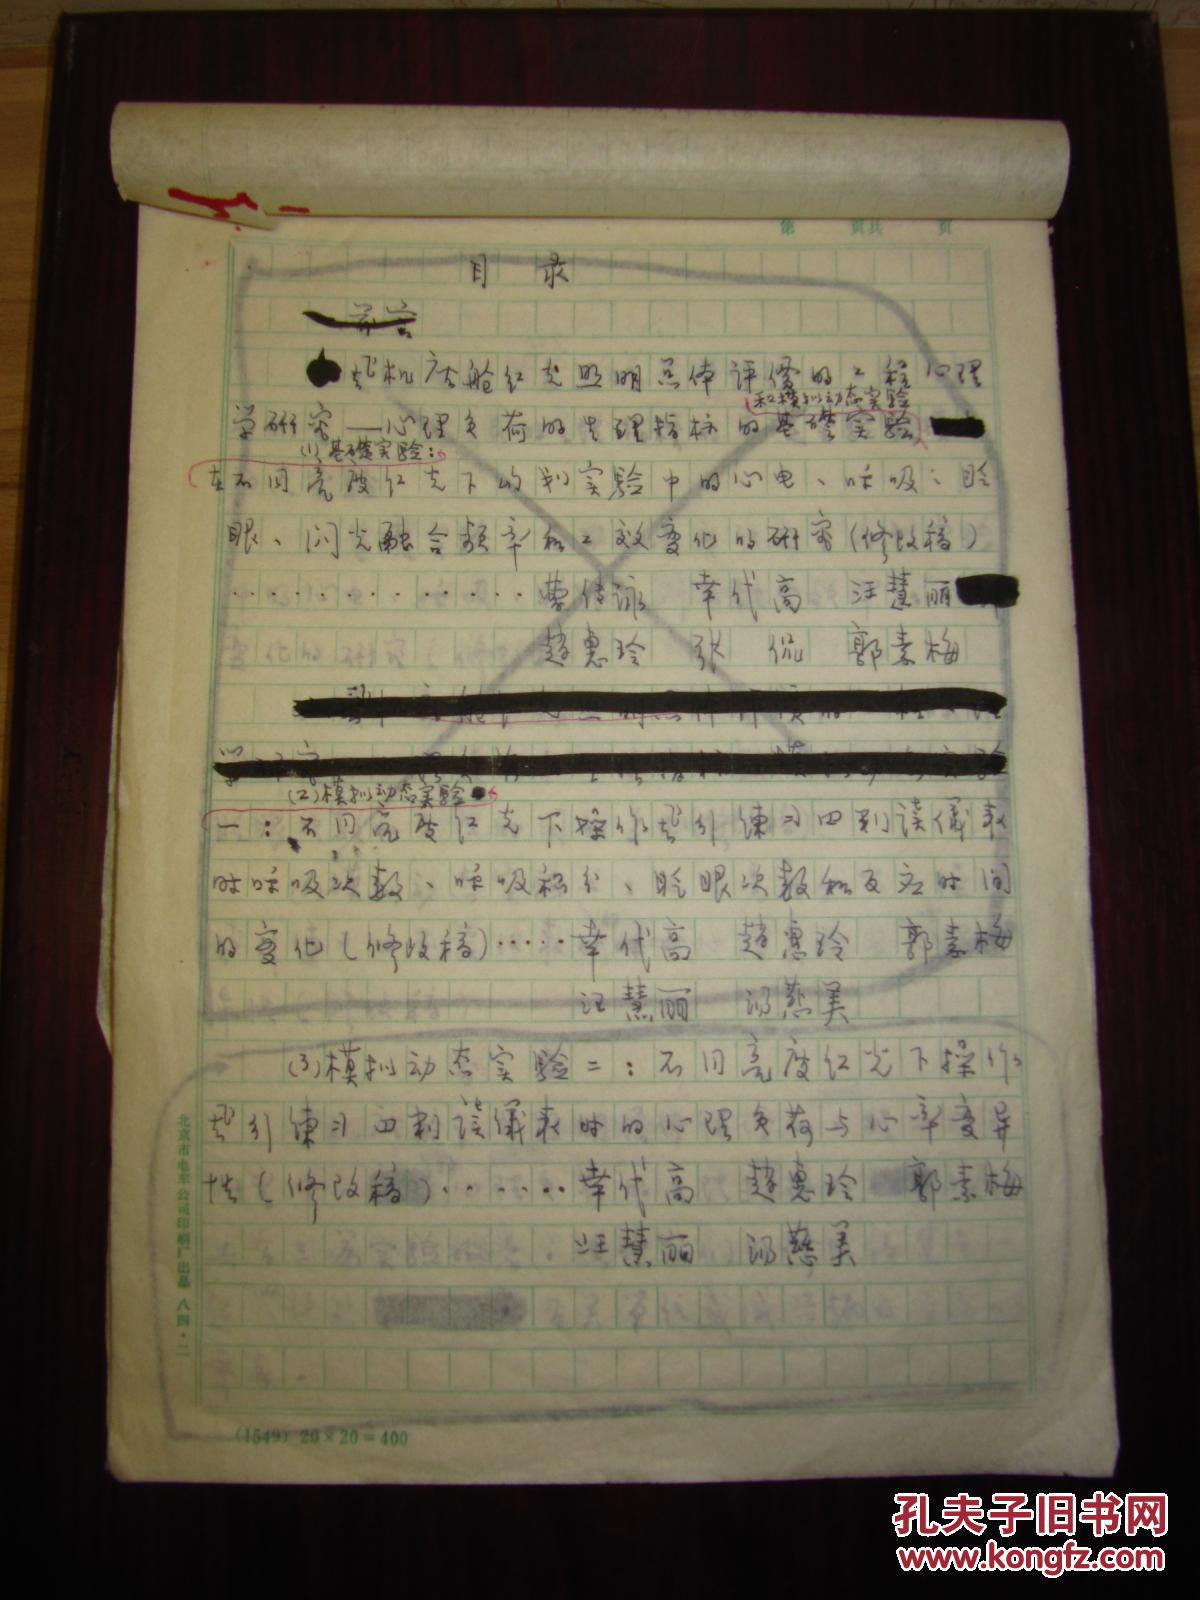 第 页共 页
目 录
前言
飞机座舱红光照明总体评价的工程心理
和模拟动态实验
学研究——心理负荷的生理指标的基础实验
(1)基础实验:
在不同亮度红光下的判实验中的心电、呼吸、眨
眼、闪光融合频率和工效变化的研究(修改稿)
··············曹传咏 幸代高 汪慧丽
赵惠玲 张侃 郭素梅
(2)模拟动态实验
一:不同亮度红光下操作飞行练习器判读仪表
时呼吸次数、呼吸积分、眨眼次数和反应时间
的变化(修改稿)·····幸代高 赵惠玲 郭素梅
汪慧丽 汤慈美
(3)模拟动态实验二:不同亮度红光下操作
飞行练习器判读仪表时的心理负荷与心率变异
性(修改稿)······幸代高 赵惠玲 郭素梅
汪慧丽 汤慈美
北京市电车公司印刷厂出品 八四·二
(1549) 20×20=400
孔夫子旧书网
www.kongfz.com